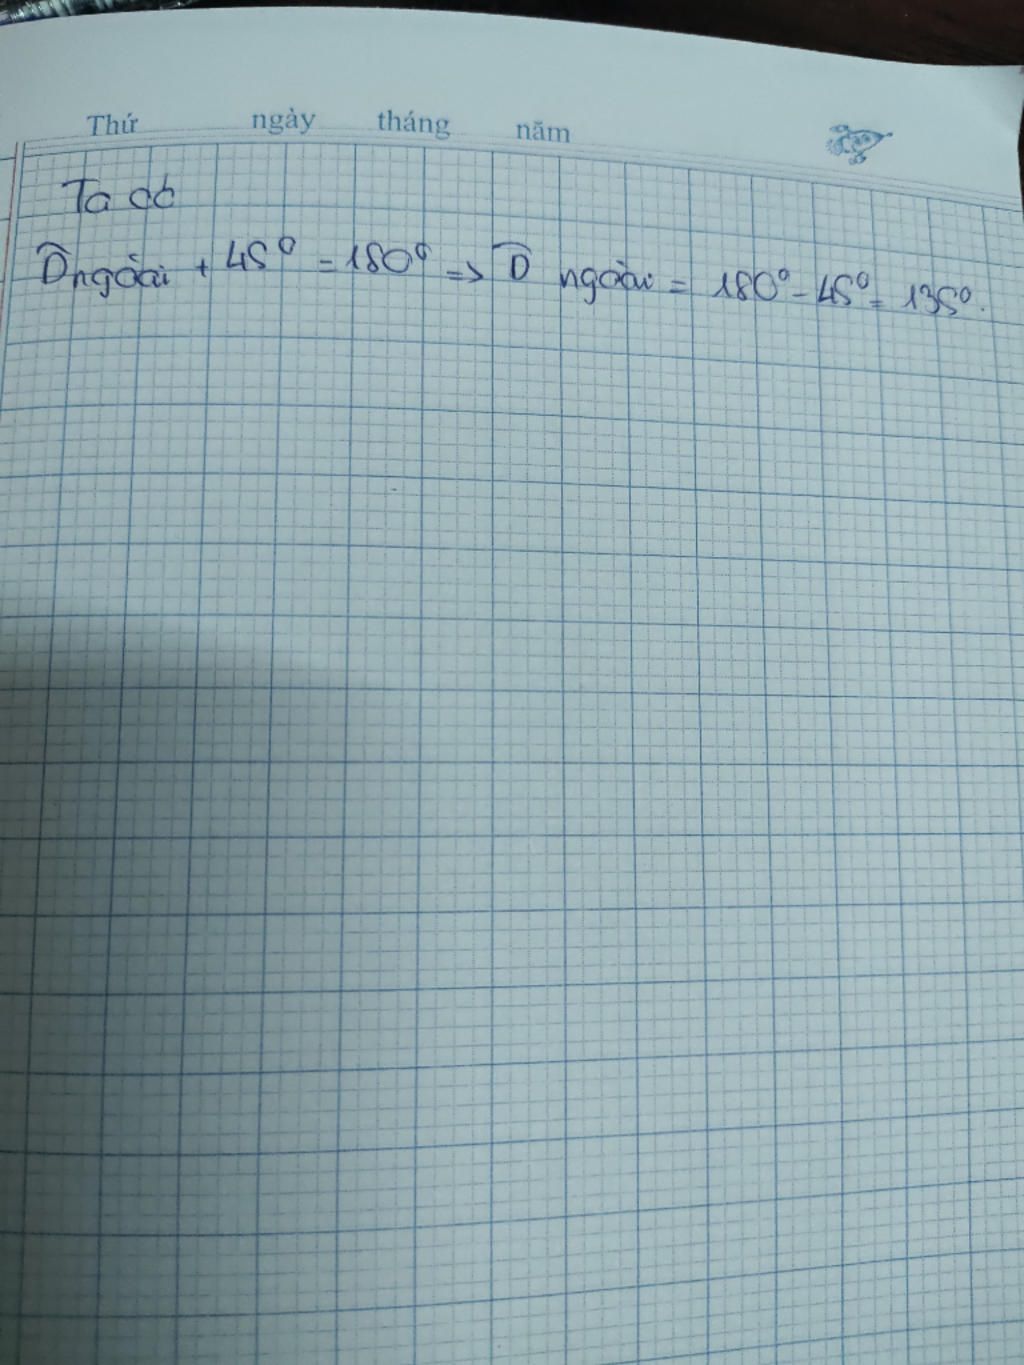 Thứ ngày tháng năm
Ta có
D̂ngoài + 45° = 180° => D̂ ngoài = 180° - 45° = 135°.